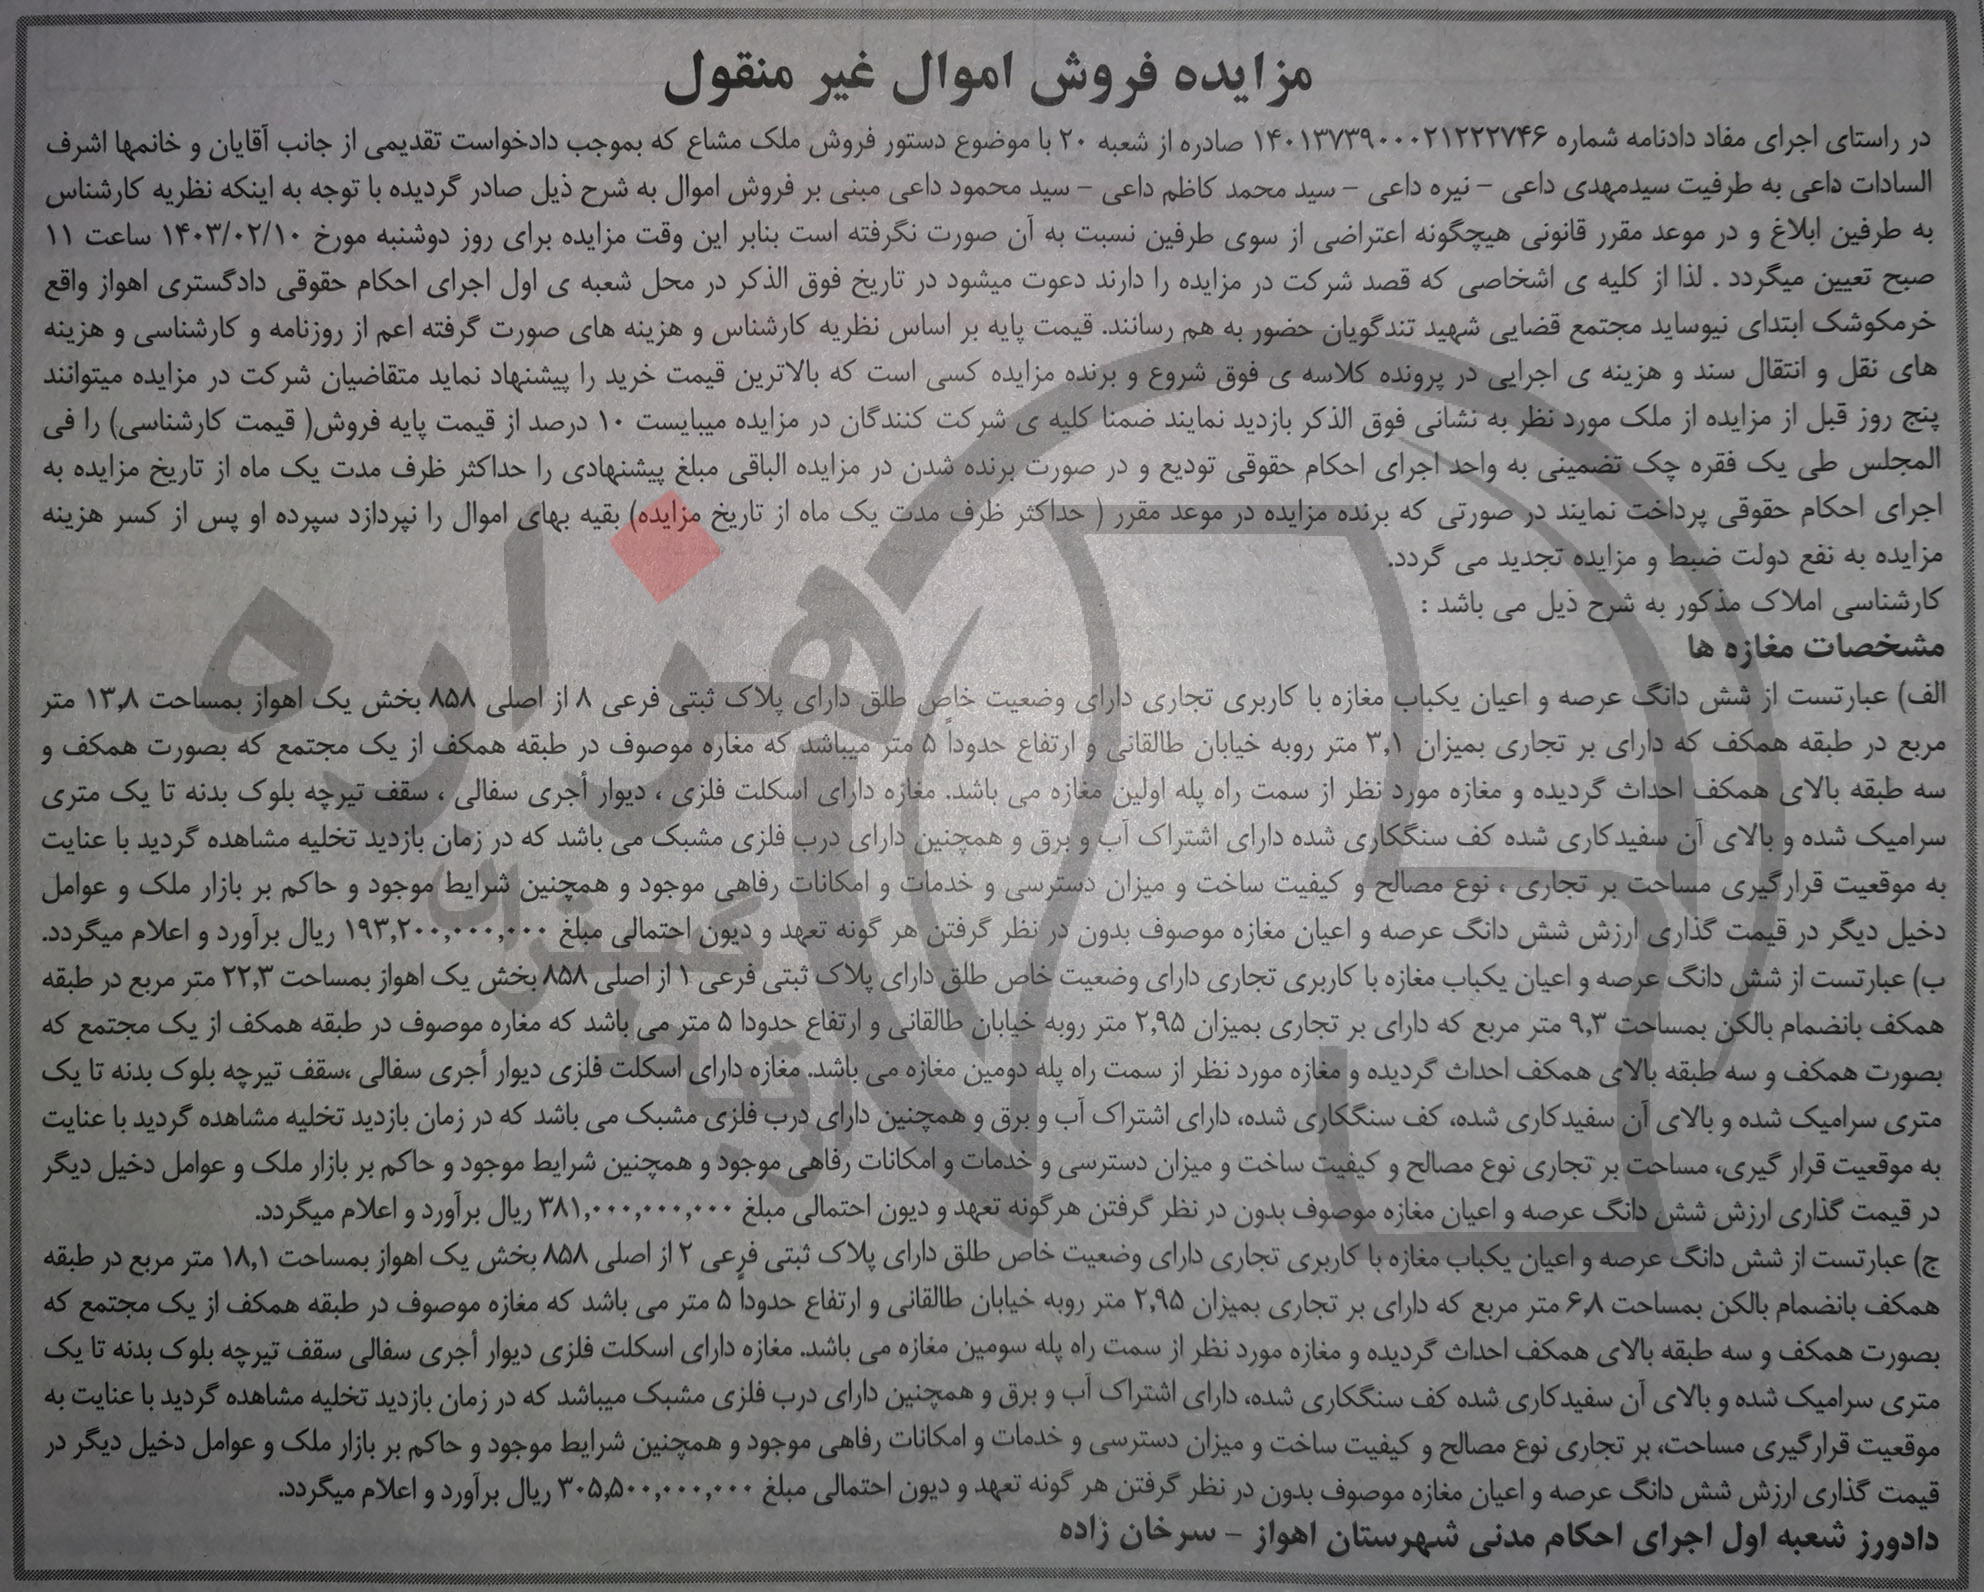 مزایده فروش اموال غیر منقول
در راستای اجرای مفاد دادنامه شماره ۱۴۰۱۳۷۳۹۰۰۰۲۱۲۲۲۷۴۶ صادره از شعبه ۲۰ با موضوع دستور فروش ملک مشاع که بموجب دادخواست تقدیمی از جانب آقایان و خانمها اشرف
السادات داعی به طرفیت سیدمهدی داعی – نیره داعی – سید محمد کاظم داعی – سید محمود داعی مبنی بر فروش اموال به شرح ذیل صادر گردیده با توجه به اینکه نظریه کارشناس
به طرفین ابلاغ و در موعد مقرر قانونی هیچگونه اعتراضی از سوی طرفین نسبت به آن صورت نگرفته است بنابر این وقت مزایده برای روز دوشنبه مورخ ۱۴۰۳/۰۲/۱۰ ساعت ۱۱
صبح تعیین میگردد . لذا از کلیه ی اشخاصی که قصد شرکت در مزایده را دارند دعوت میشود در تاریخ فوق الذکر در محل شعبه ی اول اجرای احکام حقوقی دادگستری اهواز واقع
خرمکوشک ابتدای نیوساید مجتمع قضایی شهید تندگویان حضور به هم رسانند. قیمت پایه بر اساس نظریه کارشناس و هزینه های صورت گرفته اعم از روزنامه و کارشناسی و هزینه
های نقل و انتقال سند و هزینه ی اجرایی در پرونده کلاسه ی فوق شروع و برنده مزایده کسی است که بالاترین قیمت خرید را پیشنهاد نماید متقاضیان شرکت در مزایده میتوانند
پنج روز قبل از مزایده از ملک مورد نظر به نشانی فوق الذکر بازدید نمایند ضمنا کلیه ی شرکت کنندگان در مزایده میبایست ۱۰ درصد از قیمت پایه فروش( قیمت کارشناسی) را فی
المجلس طی یک فقره چک تضمینی به واحد اجرای احکام حقوقی تودیع و در صورت برنده شدن در مزایده الباقی مبلغ پیشنهادی را حداکثر ظرف مدت یک ماه از تاریخ مزایده به
اجرای احکام حقوقی پرداخت نمایند در صورتی که برنده مزایده در موعد مقرر ( حداکثر ظرف مدت یک ماه از تاریخ مزایده) بقیه بهای اموال را نپردازد سپرده او پس از کسر هزینه
مزایده به نفع دولت ضبط و مزایده تجدید می گردد.
کارشناسی املاک مذکور به شرح ذیل می باشد :
مشخصات مغازه ها
الف) عبارتست از شش دانگ عرصه و اعیان یکباب مغازه با کاربری تجاری دارای وضعیت خاص طلق دارای پلاک ثبتی فرعی ۸ از اصلی ۸۵۸ بخش یک اهواز بمساحت ۱۳٫۸ متر
مربع در طبقه همکف که دارای بر تجاری بمیزان ۳٫۱ متر روبه خیابان طالقانی و ارتفاع حدوداً ۵ متر میباشد که مغاره موصوف در طبقه همکف از یک مجتمع که بصورت همکف و
سه طبقه بالای همکف احداث گردیده و مغازه مورد نظر از سمت راه پله اولین مغازه می باشد. مغازه دارای اسکلت فلزی ، دیوار أجری سفالی ، سقف تیرچه بلوک بدنه تا یک متری
سرامیک شده و بالای آن سفیدکاری شده کف سنگکاری شده دارای اشتراک آب و برق و همچنین دارای درب فلزی مشبک می باشد که در زمان بازدید تخلیه مشاهده گردید با عنایت
به موقعیت قرارگیری مساحت بر تجاری ، نوع مصالح و کیفیت ساخت و میزان دسترسی و خدمات و امکانات رفاهی موجود و همچنین شرایط موجود و حاکم بر بازار ملک و عوامل
دخیل دیگر در قیمت گذاری ارزش شش دانگ عرصه و اعیان مغازه موصوف بدون در نظر گرفتن هر گونه تعهد و دیون احتمالی مبلغ ۱۹۳٫۲۰۰٫۰۰۰٫۰۰۰ ریال برآورد و اعلام میگردد.
ب) عبارتست از شش دانگ عرصه و اعیان یکباب مغازه با کاربری تجاری دارای وضعیت خاص طلق دارای پلاک ثبتی فرعی ۱ از اصلی ۸۵۸ بخش یک اهواز بمساحت ۲۲٫۳ متر مربع در طبقه
همکف بانضمام بالکن بمساحت ۹٫۳ متر مربع که دارای بر تجاری بمیزان ۲٫۹۵ متر روبه خیابان طالقانی و ارتفاع حدودا ۵ متر می باشد که مغاره موصوف در طبقه همکف از یک مجتمع که
بصورت همکف و سه طبقه بالای همکف احداث گردیده و مغازه مورد نظر از سمت راه پله دومین مغازه می باشد. مغازه دارای اسکلت فلزی دیوار أجری سفالی ،سقف تیرچه بلوک بدنه تا یک
متری سرامیک شده و بالای آن سفیدکاری شده، کف سنگکاری شده، دارای اشتراک آب و برق و همچنین دارای درب فلزی مشبک می باشد که در زمان بازدید تخلیه مشاهده گردید با عنایت
به موقعیت قرار گیری، مساحت بر تجاری نوع مصالح و کیفیت ساخت و میزان دسترسی و خدمات و امکانات رفاهی موجود و همچنین شرایط موجود و حاکم بر بازار ملک و عوامل دخیل دیگر
در قیمت گذاری ارزش شش دانگ عرصه و اعیان مغازه موصوف بدون در نظر گرفتن هرگونه تعهد و دیون احتمالی مبلغ ۳۸۱٫۰۰۰٫۰۰۰٫۰۰۰ ریال برآورد و اعلام میگردد.
ج) عبارتست از شش دانگ عرصه و اعیان یکباب مغازه با کاربری تجاری دارای وضعیت خاص طلق دارای پلاک ثبتی فرعی ۲ از اصلی ۸۵۸ بخش یک اهواز بمساحت ۱۸٫۱ متر مربع در طبقه
همکف بانضمام بالکن بمساحت ۶٫۸ متر مربع که دارای بر تجاری بمیزان ۲٫۹۵ متر روبه خیابان طالقانی و ارتفاع حدوداً ۵ متر می باشد که مغازه موصوف در طبقه همکف از یک مجتمع که
بصورت همکف و سه طبقه بالای همکف احداث گردیده و مغازه مورد نظر از سمت راه پله سومین مغازه می باشد. مغازه دارای اسکلت فلزی دیوار أجری سفالی سقف تیرچه بلوک بدنه تا یک
متری سرامیک شده و بالای آن سفیدکاری شده کف سنگکاری شده، دارای اشتراک آب و برق و همچنین دارای درب فلزی مشبک میباشد که در زمان بازدید تخلیه مشاهده گردید با عنایت به
موقعیت قرارگیری مساحت، بر تجاری نوع مصالح و کیفیت ساخت و میزان دسترسی و خدمات و امکانات رفاهی موجود و همچنین شرایط موجود و حاکم بر بازار ملک و عوامل دخیل دیگر در
قیمت گذاری ارزش شش دانگ عرصه و اعیان مغازه موصوف بدون در نظر گرفتن هر گونه تعهد و دیون احتمالی مبلغ ۳۰۵٫۵۰۰٫۰۰۰٫۰۰۰ ریال برآورد و اعلام میگردد.
دادورز شعبه اول اجرای احکام مدنی شهرستان اهواز – سرخان زاده
هزاره